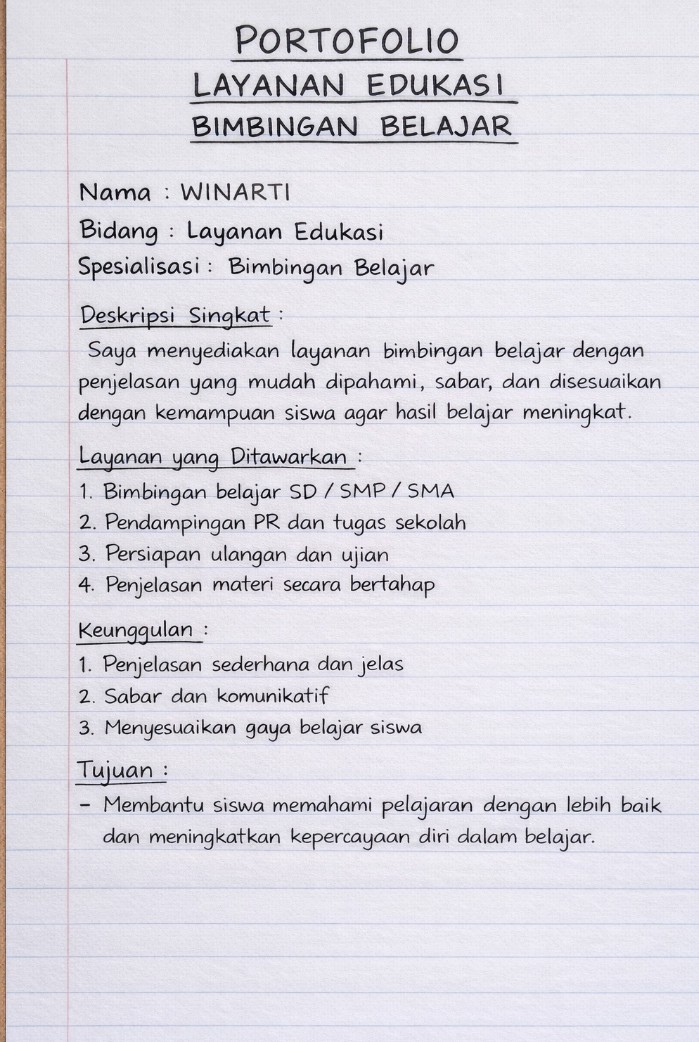 PORTOFOLIO
LAYANAN EDUKASI
BIMBINGAN BELAJAR
Nama : WINARTI
Bidang : Layanan Edukasi
Spesialisasi : Bimbingan Belajar
Deskripsi Singkat :
Saya menyediakan layanan bimbingan belajar dengan
penjelasan yang mudah dipahami, sabar, dan disesuaikan
dengan kemampuan siswa agar hasil belajar meningkat.
Layanan yang Ditawarkan :
1. Bimbingan belajar SD / SMP / SMA
2. Pendampingan PR dan tugas sekolah
3. Persiapan ulangan dan ujian
4. Penjelasan materi secara bertahap
Keunggulan :
1. Penjelasan sederhana dan jelas
2. Sabar dan komunikatif
3. Menyesuaikan gaya belajar siswa
Tujuan :
– Membantu siswa memahami pelajaran dengan lebih baik
dan meningkatkan kepercayaan diri dalam belajar.